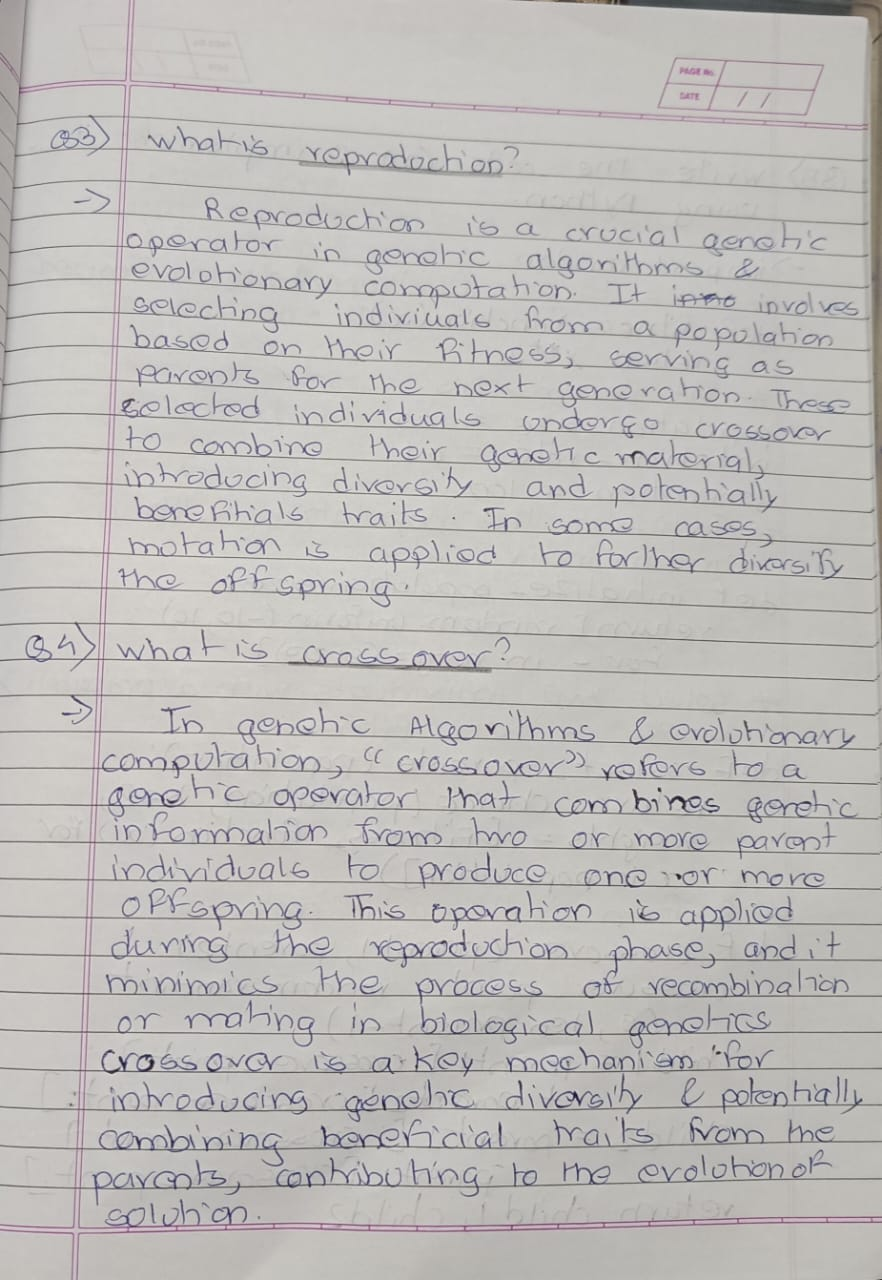 PAGE No.
DATE / /
Q3) What is reproduction?
→ Reproduction is a crucial genetic
operator in genetic algorithms &
evolutionary computation. It involves
selecting indiviuals from a population
based on their fitness, serving as
parents for the next generation. These
selected individuals undergo crossover
to combine their genetic material,
introducing diversity and potentially
benefitials traits. In some cases,
mutation is applied to further diversify
the offspring.
Q4) What is crossover?
→ In genetic Algorithms & evolutionary
computation, "crossover" refers to a
genetic operator that combines genetic
information from two or more parent
individuals to produce one or more
offspring. This operation is applied
during the reproduction phase, and it
minimics the process of recombination
or mating in biological genetics
crossover is a key mechanism for
introducing genetic diversity & potentially
combining beneficial traits from the
parents, contributing to the evolution of
solution.